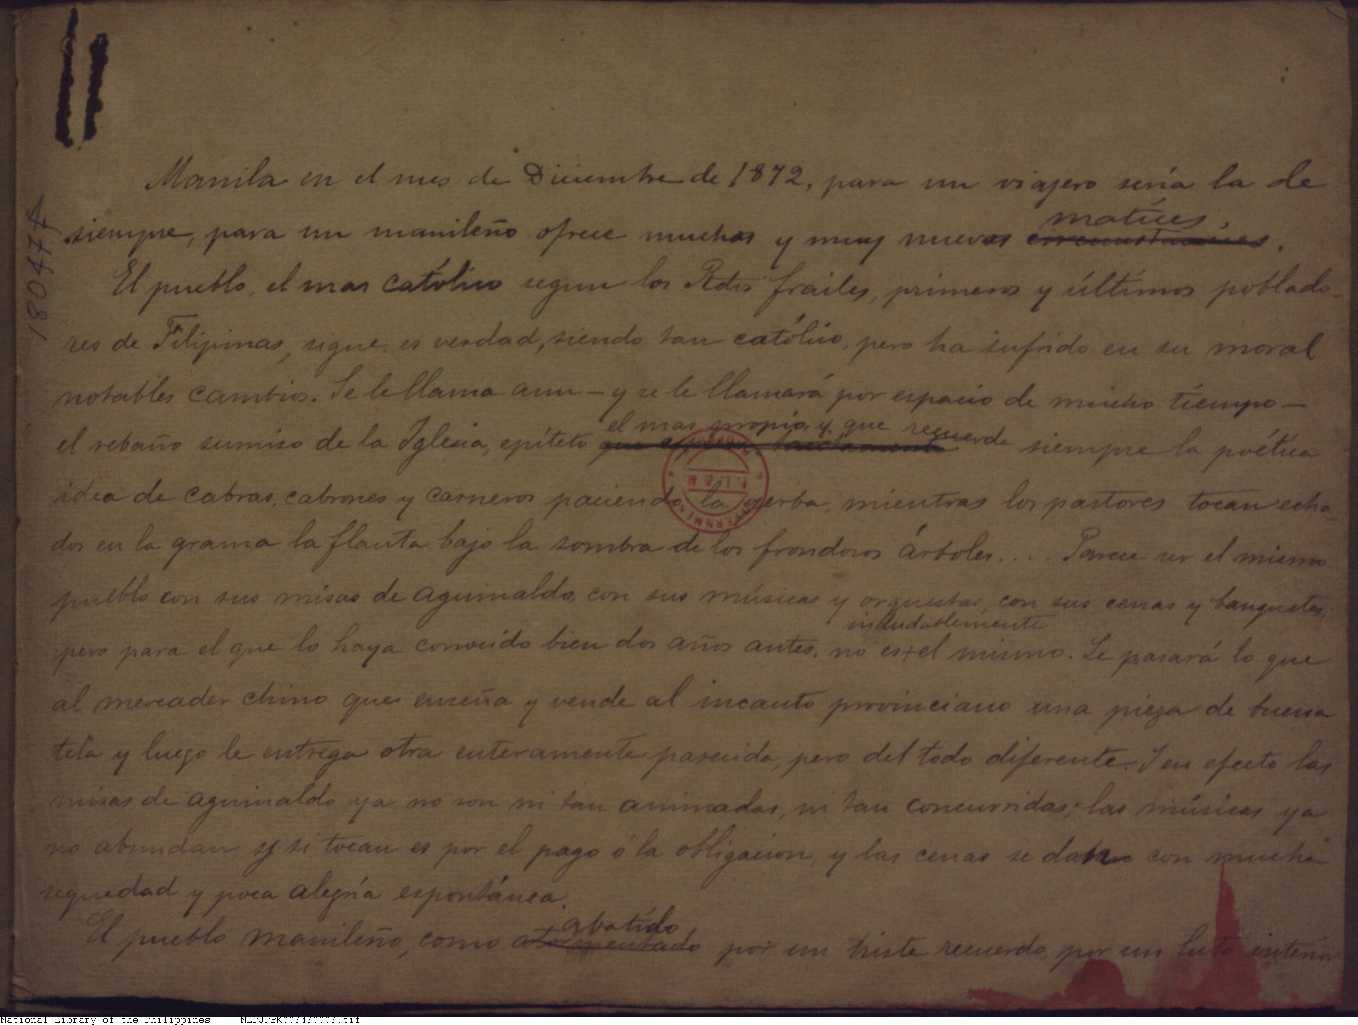 180474
Manila en el mes de Diciembre de 1872, para un viajero seria la de
matices.
siempre, para un manileño ofrece muchos y muy nuevos circunstancias.
El pueblo, el mas católico segun los Pdres frailes, primeros y últimos poblado-
res de Filipinas, sigue, es verdad, siendo tan católico, pero ha sufrido en su moral
notables cambios. Se le llama aun — y se le llamará por espacio de mucho tiempo —
el mas propio y que recuerde
el rebaño sumiso de la Iglesia, epíteto siempre la poética
idea de cabras, cabrones y carneros paciendo la yerba, mientras los pastores tocan echa-
dos en la grama la flauta bajo la sombra de los frondosos árboles... Parece ser el mismo
pueblo con sus misas de aguinaldo, con sus músicas y orquestas, con sus cenas y banquetes,
indudablemente
pero para el que lo haya conocido bien dos años antes, no es + el mismo. Le pasará lo que
al mercader chino que enseña y vende al incauto provinciano una pieza de buena
tela y luego le entrega otra enteramente parecida, pero del todo diferente. Y en efecto las
misas de aguinaldo ya no son ni tan animadas, ni tan concurridas; las músicas ya
no abundan y si tocan es por el pago ó la obligacion, y las cenas se dan con mucha
sequedad y poca alegría espontánea.
abatido
El pueblo manileño, como por un triste recuerdo, por un luto interior
National Library of the Philippines